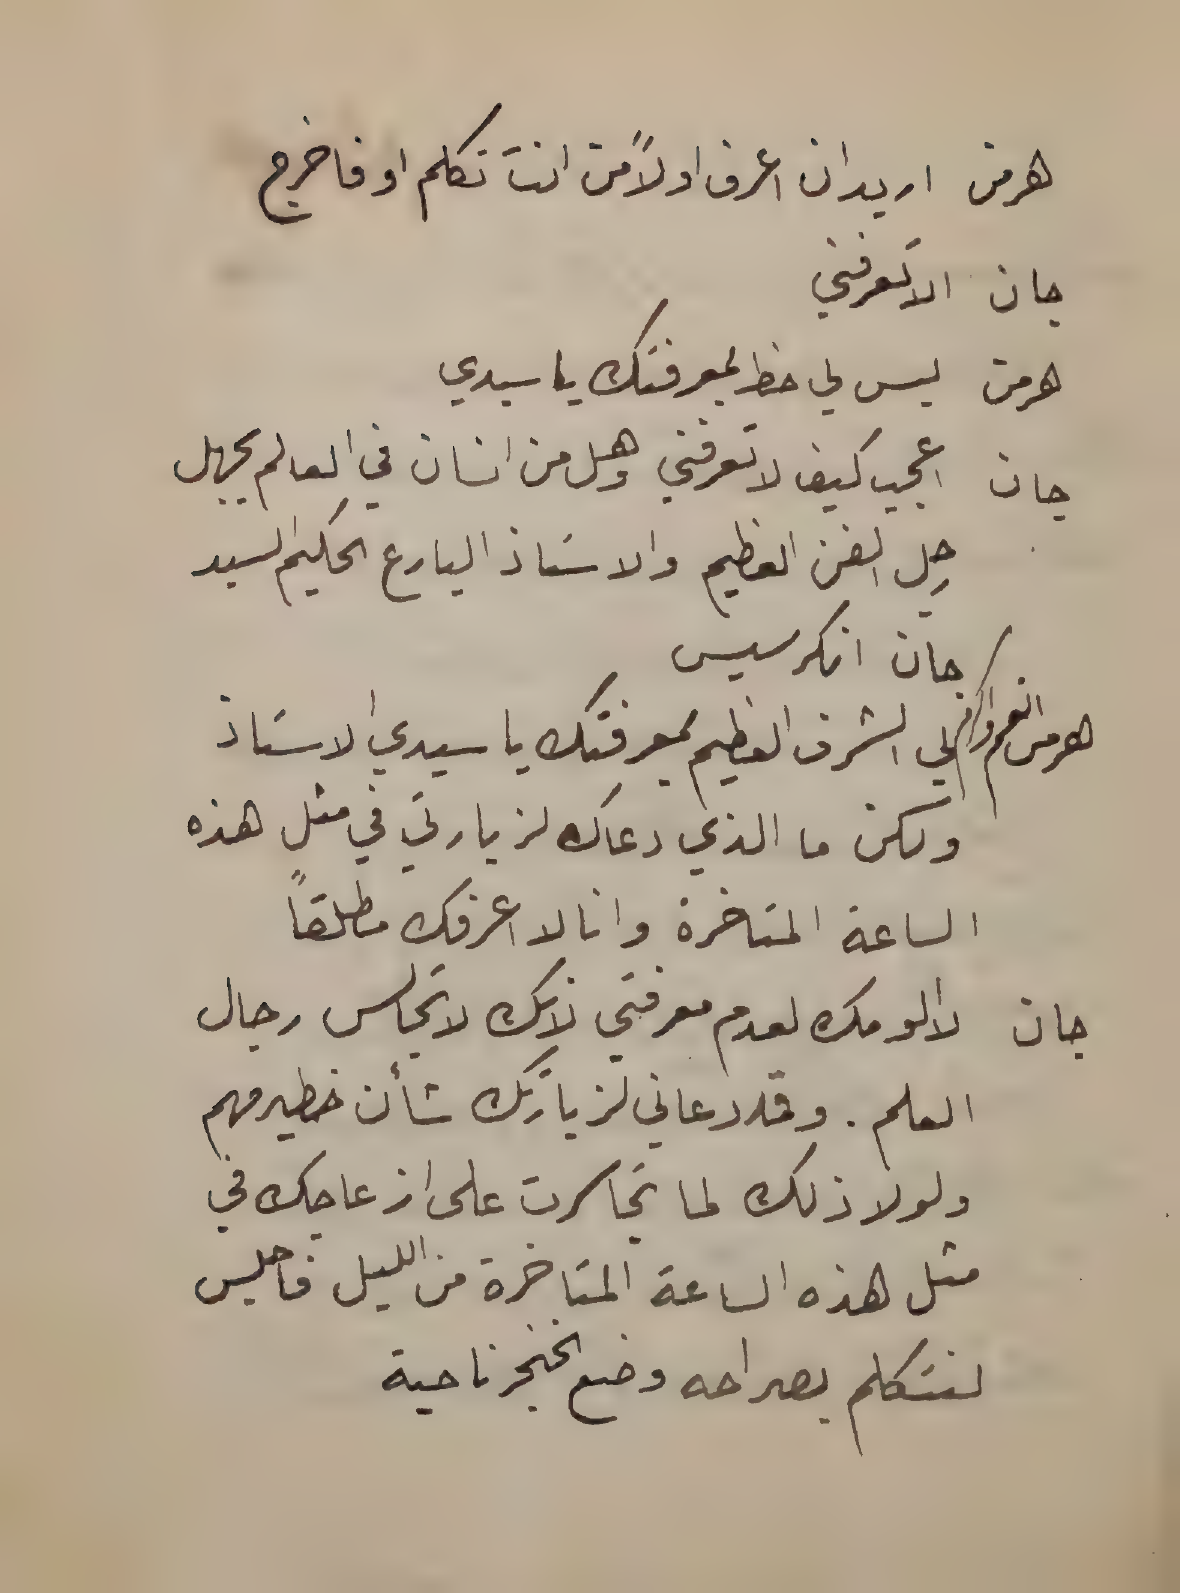 هرمن اريد ان اعرف اولاً من انت تكلم او فاخرج
جان الا تعرفني
هرمن ليس لي حظ لمعرفتك يا سيدي
جان اعجب كيف لا تعرفني وهل من انسان في العالم يجهل
رجل الفن العظيم والاستاذ البارع الحكيم السيد
جان انكرسيس
هرمن انعم واكرم لي الشرف العظيم بمعرفتك يا سيدي الاستاذ
ولكن ما الذي دعاك لزيارتي في مثل هذه
الساعة المتاخرة وانا لا اعرفك مطلقاً
جان لا الومك لعدم معرفتي لانك لا تجالس رجال
العلم . وقد دعاني لزيارتك شأن خطير مهم
ولولا ذلك لما تجاسرت على ازعاجك في
مثل هذه الساعة المتاخرة من الليل فاجلس
لنتكلم بصراحه وضع الخنجر ناحية